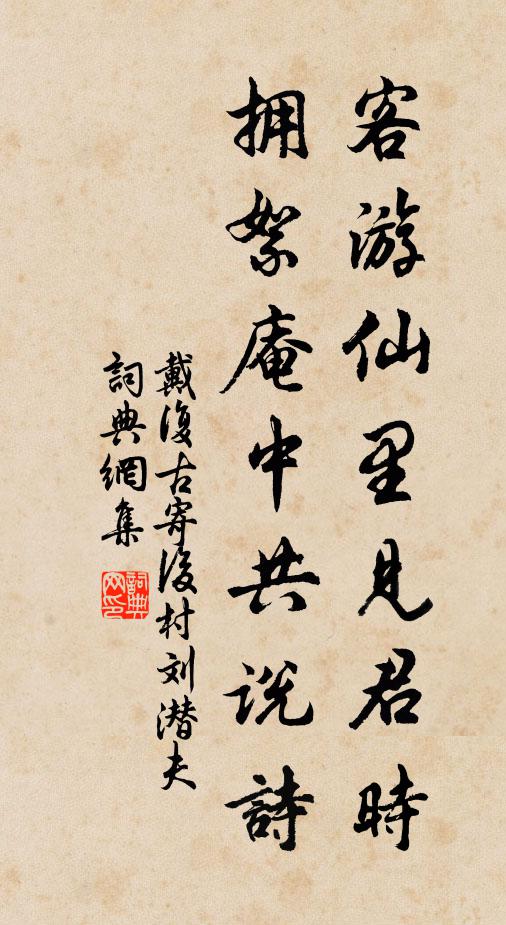 客游仙里見君時
拥絮庵中共说詩
戴復古寄後村刘潜夫
詞典網集
詞典網印